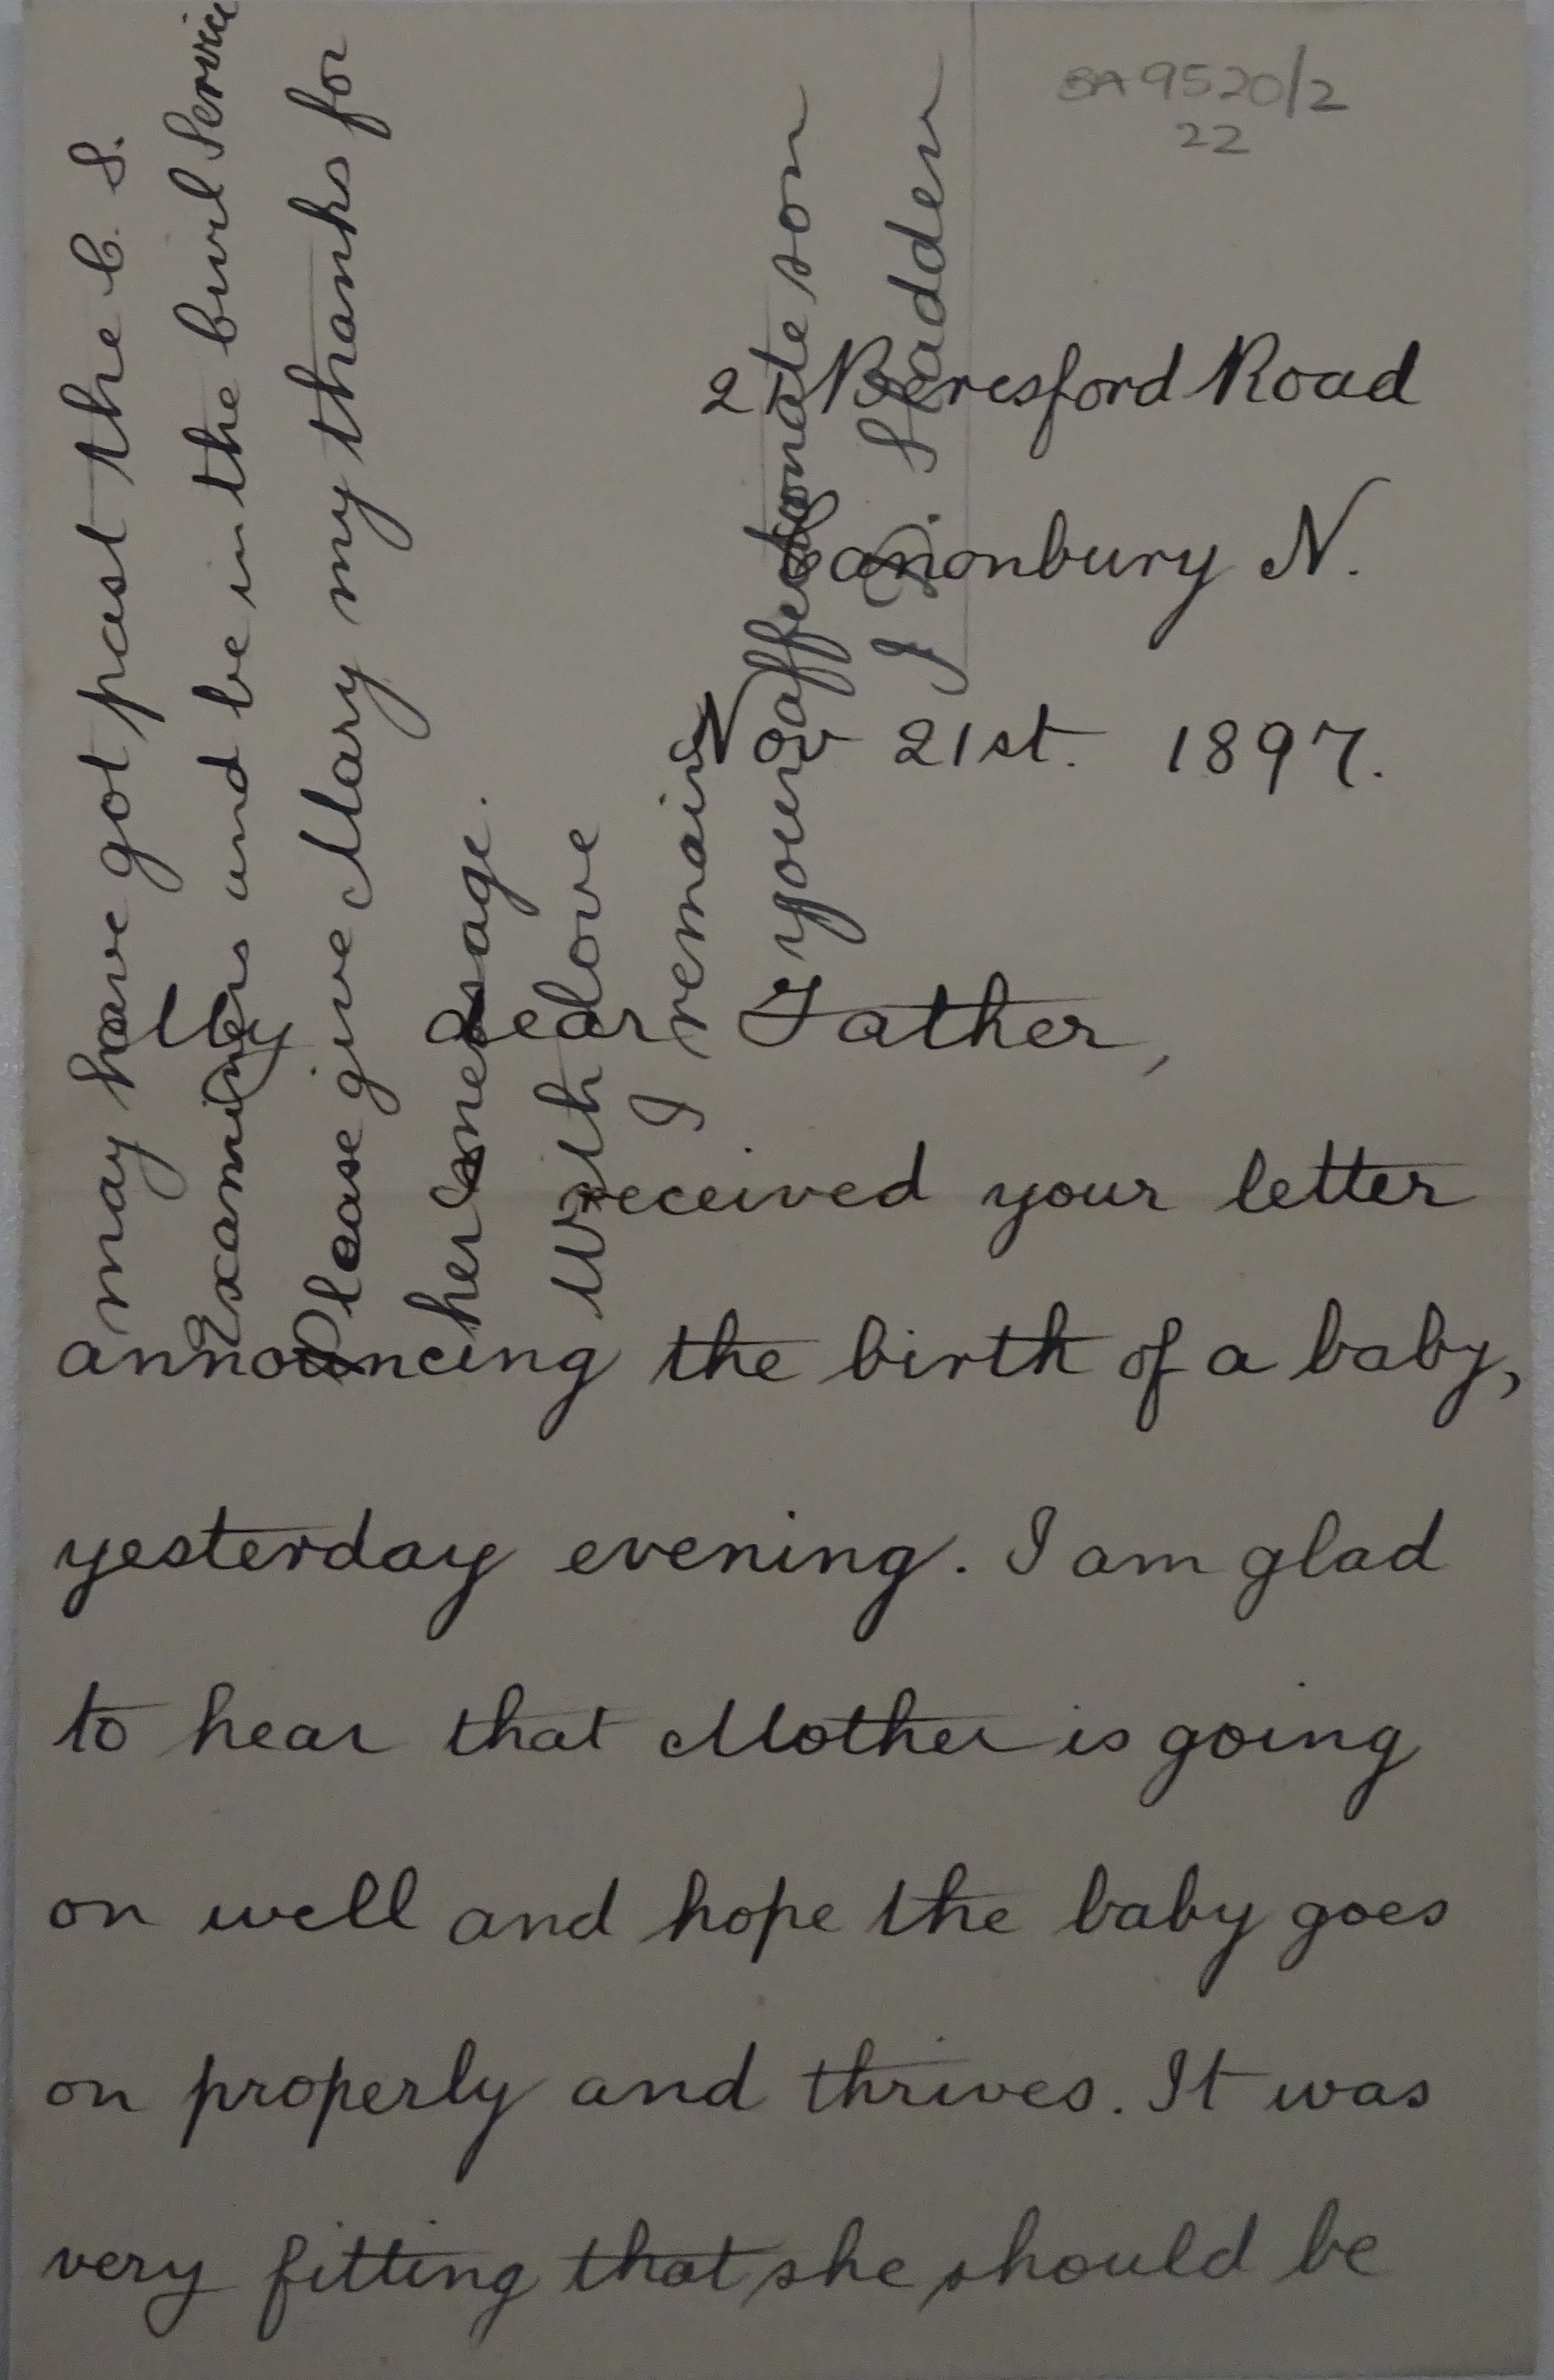 BA 9520/2
22
2 Beresford Road
Canonbury N.
Nov 21st. 1897.
My dear Father,
received your letter
announcing the birth of a baby,
yesterday evening. I am glad
to hear that Mother is going
on well and hope the baby goes
on properly and thrives. It was
very fitting that she should be
may have got past the C. S.
Examiners and be in the Civil Service
Please give Mary my thanks for
her message.
With love
I remain
your affectionate son
J D. Hadden